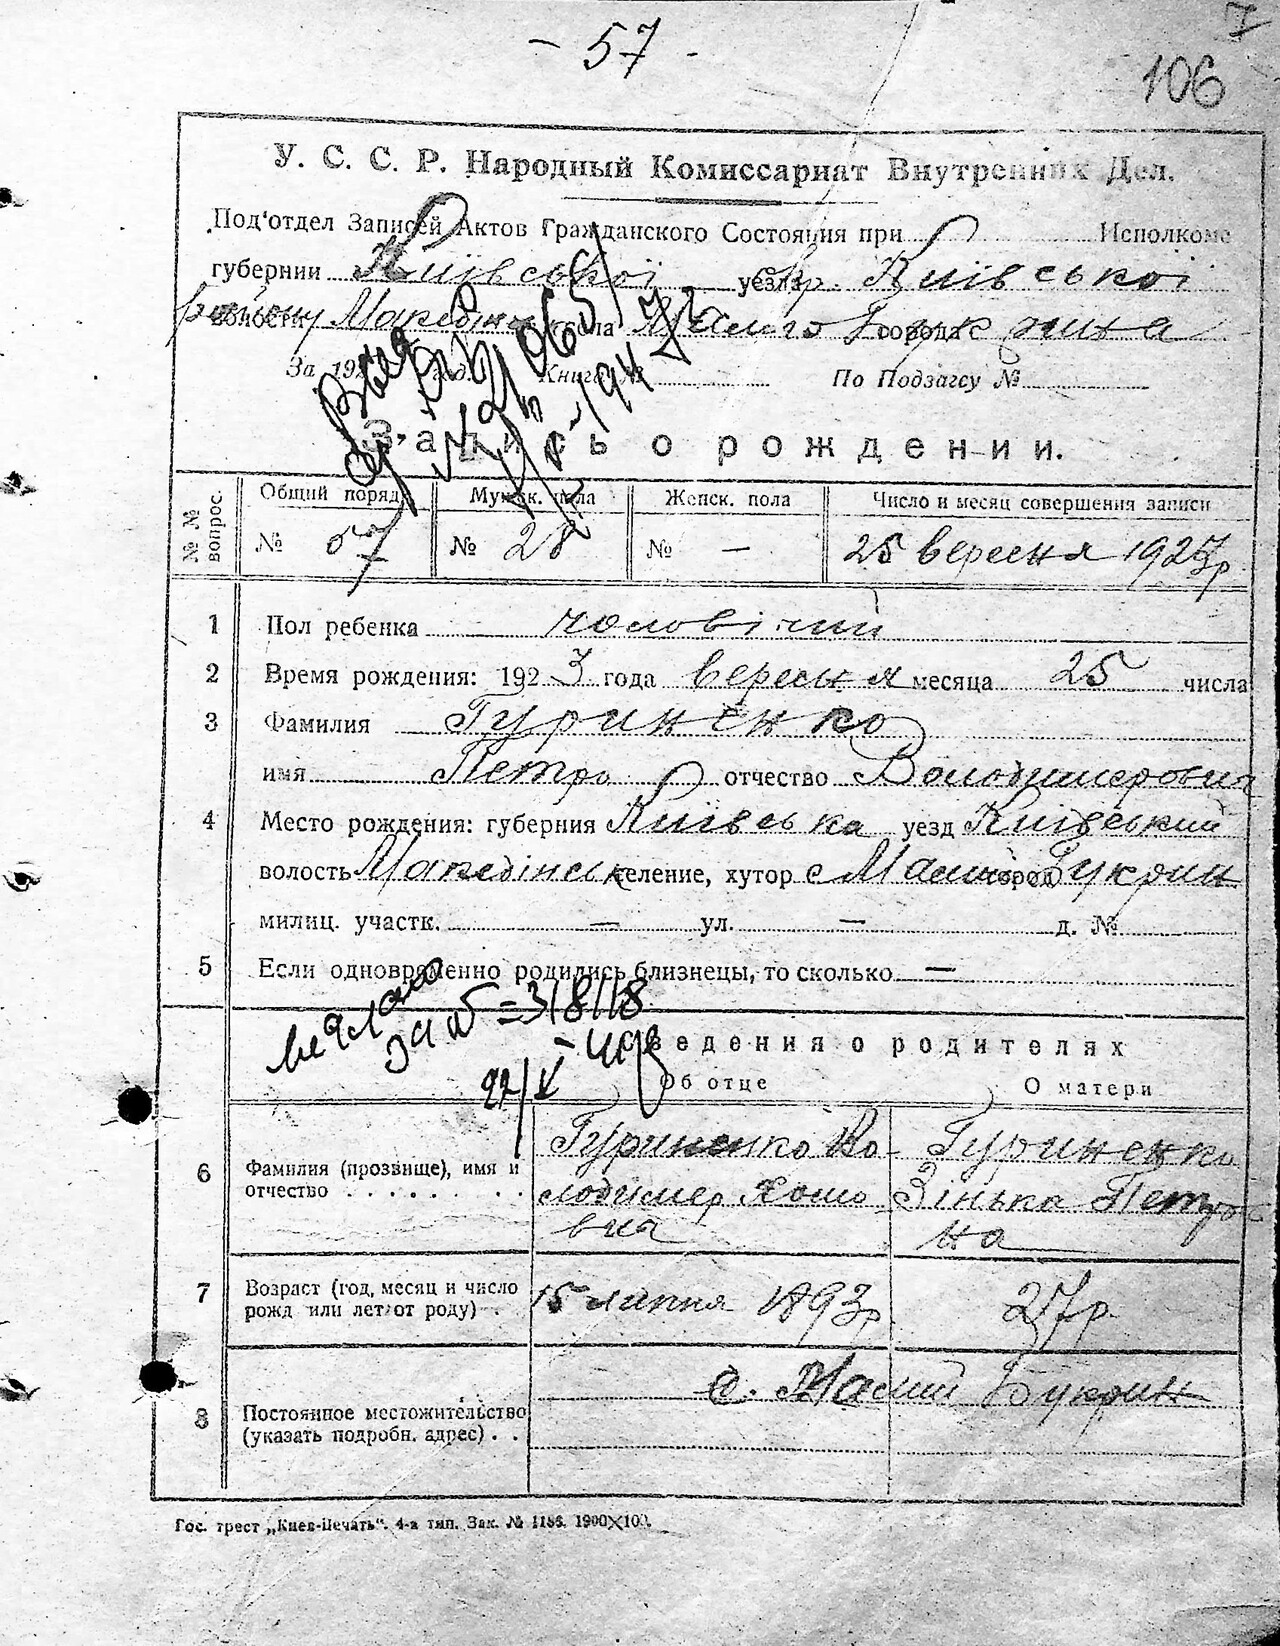 - 57 -
7
106
У. С. С. Р. Народный Комиссариат Внутренних Дел.
Под'отдел Записей Актов Гражданского Состояния при Исполкоме
губернии Київської уезда окр. Київської
волости району села Малого городе Букрина
За 192 год. Книга № По Подзагсу №
Запись о рождении.
№№ вопрос.
Общий поряд. Мужск. пола Женск. пола Число и месяц совершения записи
№ 57 № 28 № — 25 вересня 1923р
1 Пол ребенка чоловічий
2 Время рождения: 1923 года вересня месяца 25 числа
3 Фамилия Гуриненко
имя Петро отчество Володимерович
4 Место рождения: губерния Київська уезд Київський
волость селение, хутор с Малий город Букрин
милиц. участк. — ул. — д. №
5 Если одновременно родились близнецы, то сколько —
Сведения о родителях
Об отце О матери
6 Фамилия (прозвище), имя и отчество . . . . . . . .
Гуриненко Володимер Хомович
Гуриненко Зінька Петровна
7 Возраст (год, месяц и число рожд или лет от роду) .
15 липня 1893р. 27р.
8 Постоянное местожительство (указать подробн. адрес) . .
с. Малий Букрин
Гос. трест „Киев-Печать". 4-а тип. Зак. № 1186. 1900×100.